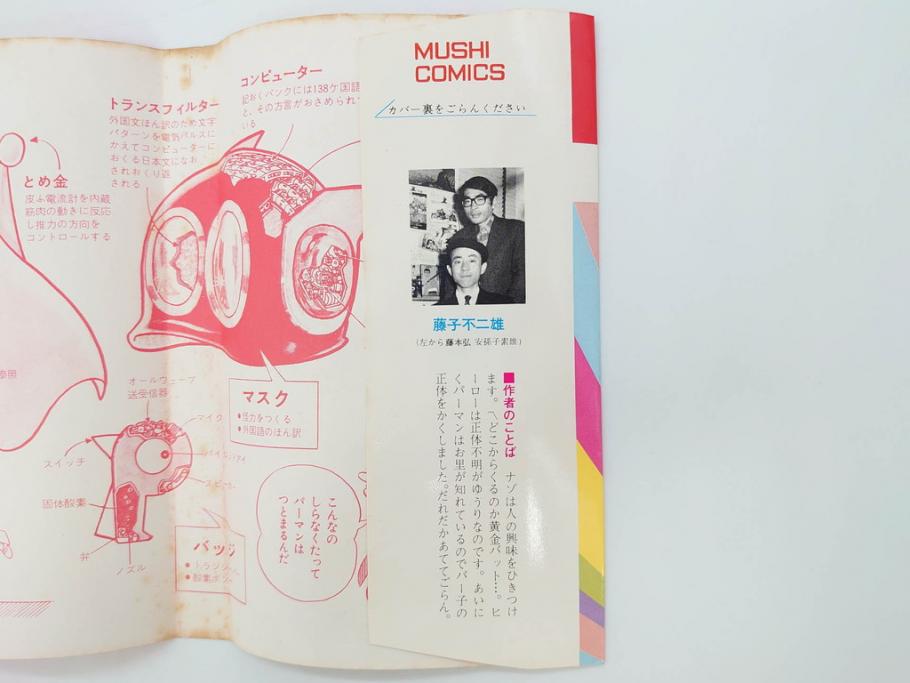 MUSHI
COMICS
カバー裏をごらんください
藤子不二雄
(左から藤本弘 安孫子素雄)
■作者のことば ナゾは人の興味をひきつけ
ます。〽どこからくるのか黄金バット…。ヒ
ーローは正体不明がゆうりなのです。あいに
くパーマンはお里が知れているのでパー子の
正体をかくしました。だれだかあててごらん。
コンピューター
記おくバンクには138ケ国語
と、その方言がおさめられ
いる
トランスフィルター
外国文ほん訳のため文字
パターンを電気パルスに
かえてコンピューターに
おくる日本文になお
されおくり返
される
とめ金
皮ふ電流計を内蔵
筋肉の動きに反応
し推力の方向を
コントロールする
マスク
●怪力をつくる
●外国語のほん訳
オールウェーブ
送受信器
マイク
スイッチ
固体酸素
弁
ノズル
バッジ
こんなの
しらなくたって
パーマンは
つとまるんだ